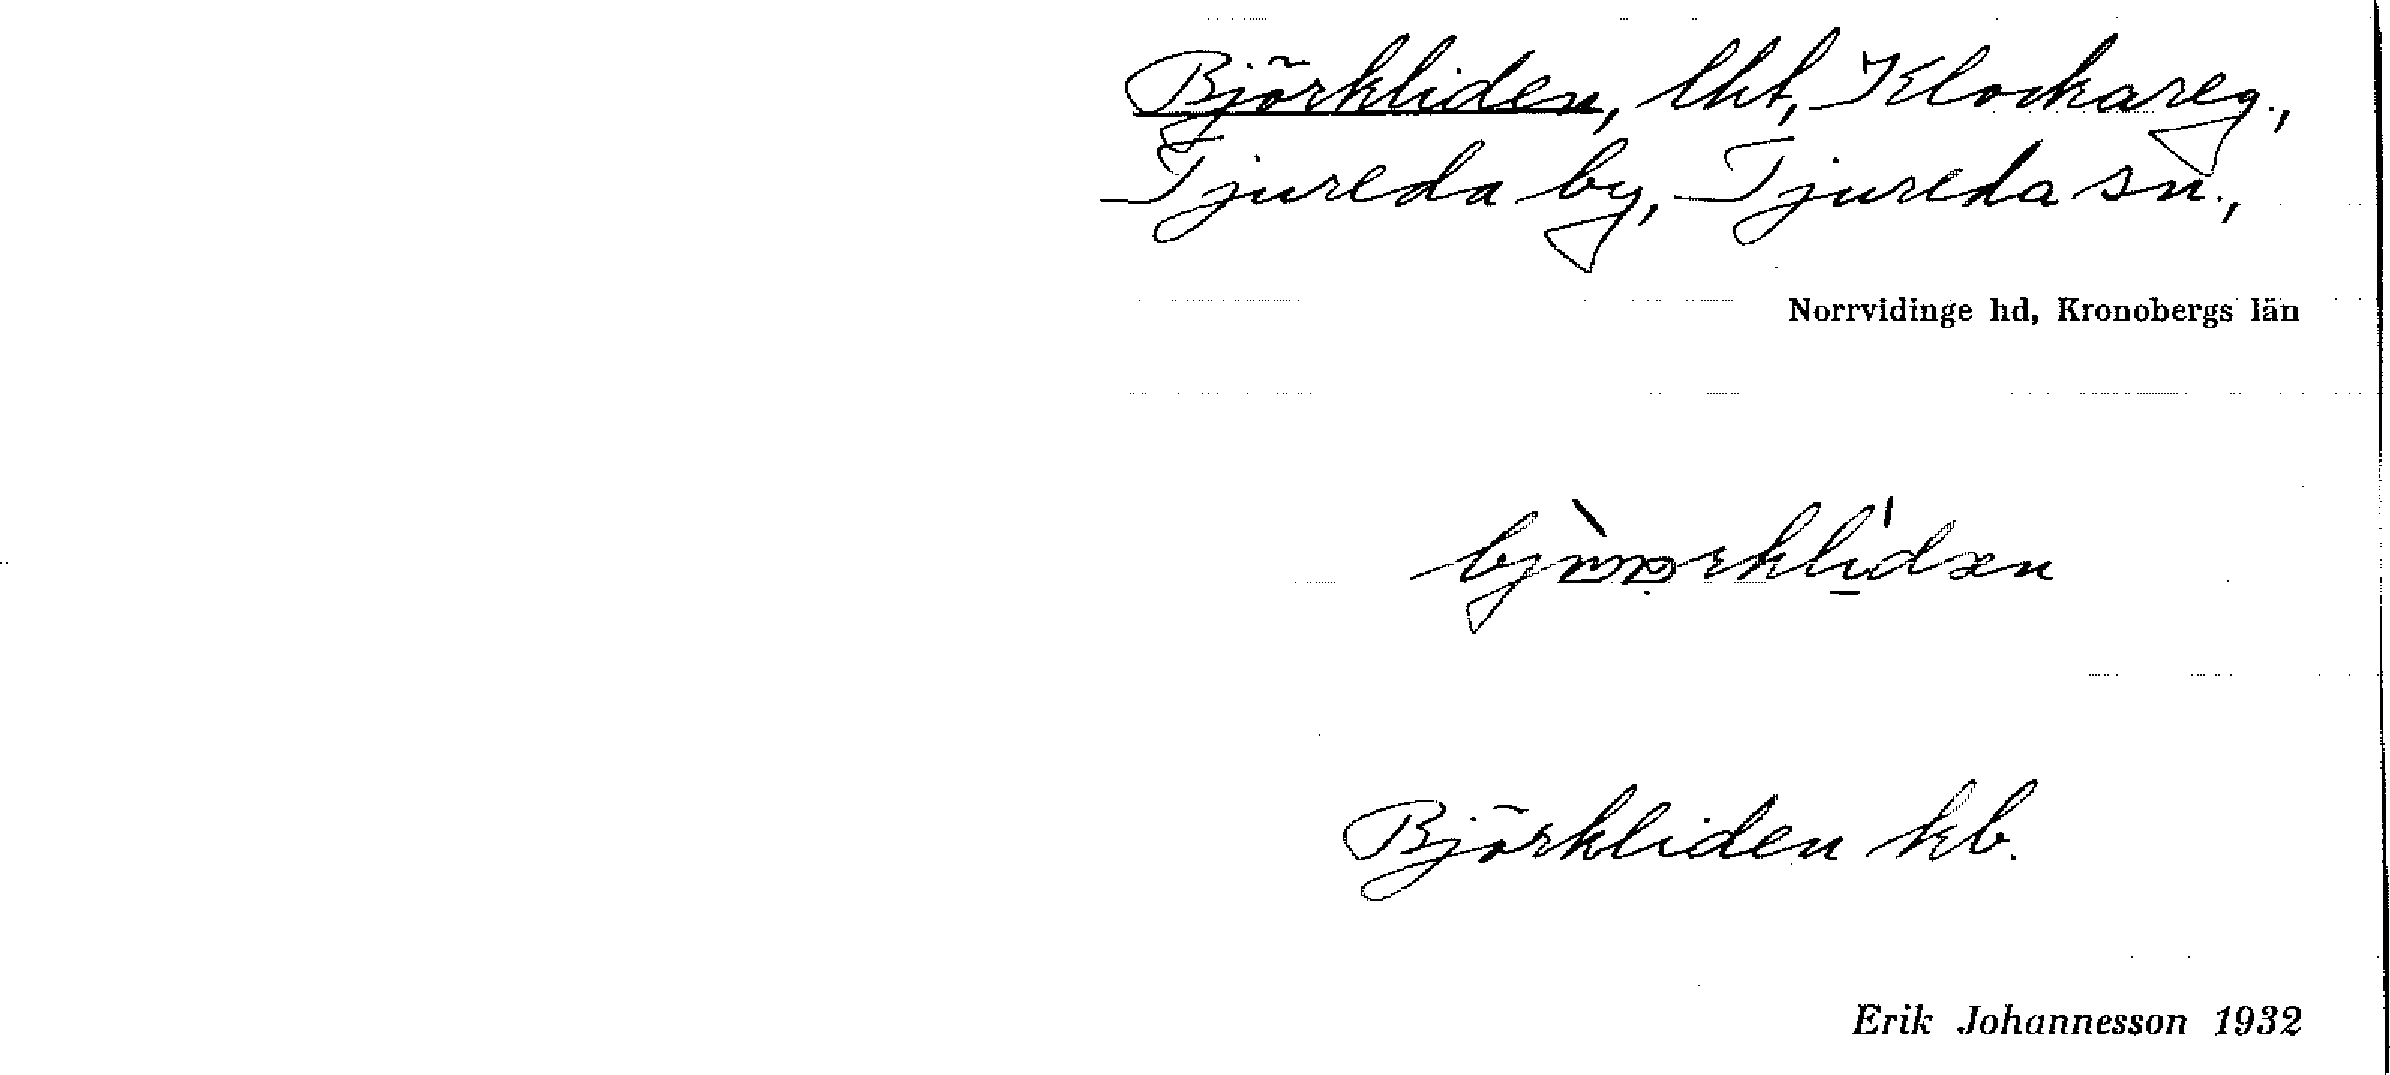 Björkliden, lht, Klockareg.,
Tjureda by, Tjureda sn.,
Norrvidinge hd, Kronobergs län
Björkliden kb.
Erik Johannesson 1932